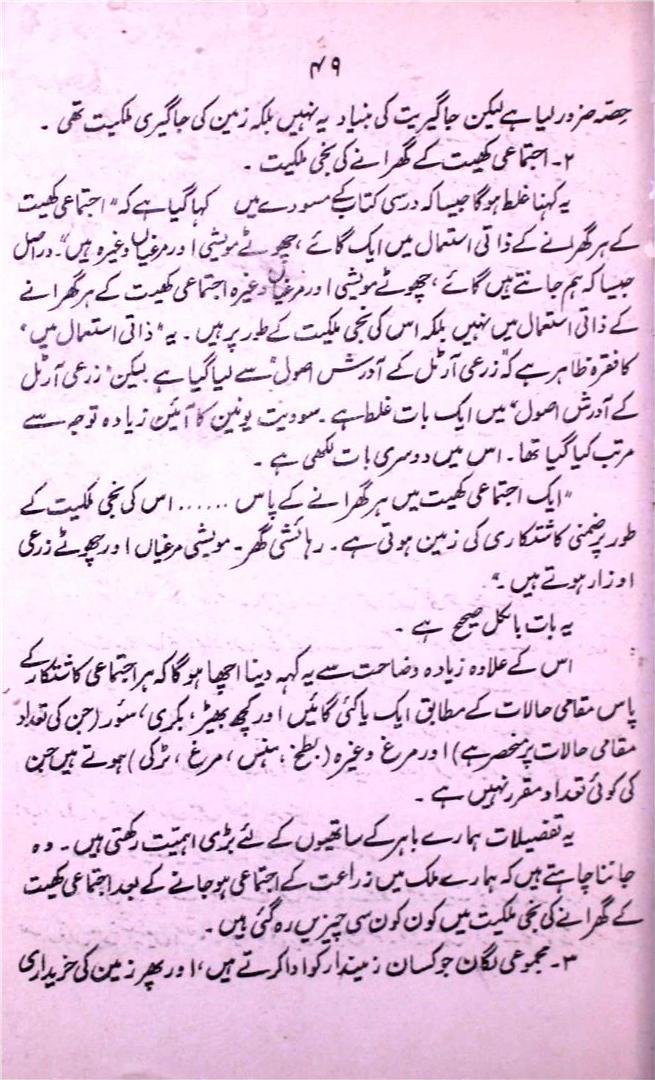 ۴۹
حصّہ ضرور لیا ہے لیکن جاگیریت کی بنیاد یہ نہیں بلکہ زمین کی جاگیری ملکیت تھی ۔
۲۔ اجتماعی کھیت کے گھرانے کی نجی ملکیت ۔
یہ کہنا غلط ہوگا جیسا کہ درسی کتاب کے مسودے میں کہا گیا ہے کہ "اجتماعی کھیت
کے ہر گھرانے کے ذاتی استعمال میں ایک گائے ، چھوٹے مویشی اور مرغیاں وغیرہ ہیں"۔ دراصل
جیسا کہ ہم جانتے ہیں گائے ، چھوٹے مویشی اور مرغیاں وغیرہ اجتماعی کھیت کے ہر گھرانے
کے ذاتی استعمال میں نہیں بلکہ اس کی نجی ملکیت کے طور پر ہیں ۔ یہ "ذاتی استعمال میں"
کا فقرہ ظاہر ہے کہ "زرعی آرٹل کے آدرش اصول" سے لیا گیا ہے لیکن "زرعی آرٹل
کے آدرش اصول" میں ایک بات غلط ہے ۔ سوویت یونین کا آئین زیادہ توجہ سے
مرتب کیا گیا تھا ۔ اس میں دوسری بات لکھی ہے ۔
"ایک اجتماعی کھیت میں ہر گھرانے کے پاس ...... اس کی نجی ملکیت کے
طور پر ضمنی کاشتکاری کی زمین ہوتی ہے ۔ رہائشی گھر ۔ مویشی مرغیاں اور چھوٹے زرعی
اوزار ہوتے ہیں ۔"
یہ بات بالکل صحیح ہے ۔
اس کے علاوہ زیادہ وضاحت سے یہ کہہ دینا اچھا ہوگا کہ ہر اجتماعی کاشتکار کے
پاس مقامی حالات کے مطابق ایک یا کئی گائیں اور کچھ بھیڑ ، بکری ، سؤر (جن کی تعداد
مقامی حالات پر منحصر ہے) اور مرغ وغیرہ (بطخ ، ہنس ، مرغ ، ٹرکی) ہوتے ہیں جن
کی کوئی تعداد مقرر نہیں ہے ۔
یہ تفصیلات ہمارے باہر کے ساتھیوں کے لئے بڑی اہمیت رکھتی ہیں ۔ وہ
جاننا چاہتے ہیں کہ ہمارے ملک میں زراعت کے اجتماعی ہوجانے کے بعد اجتماعی کھیت
کے گھرانے کی نجی ملکیت میں کون کون سی چیزیں رہ گئی ہیں ۔
۳۔ مجموعی لگان جو کسان زمیندار کو ادا کرتے ہیں ، اور پھر زمین کی خریداری